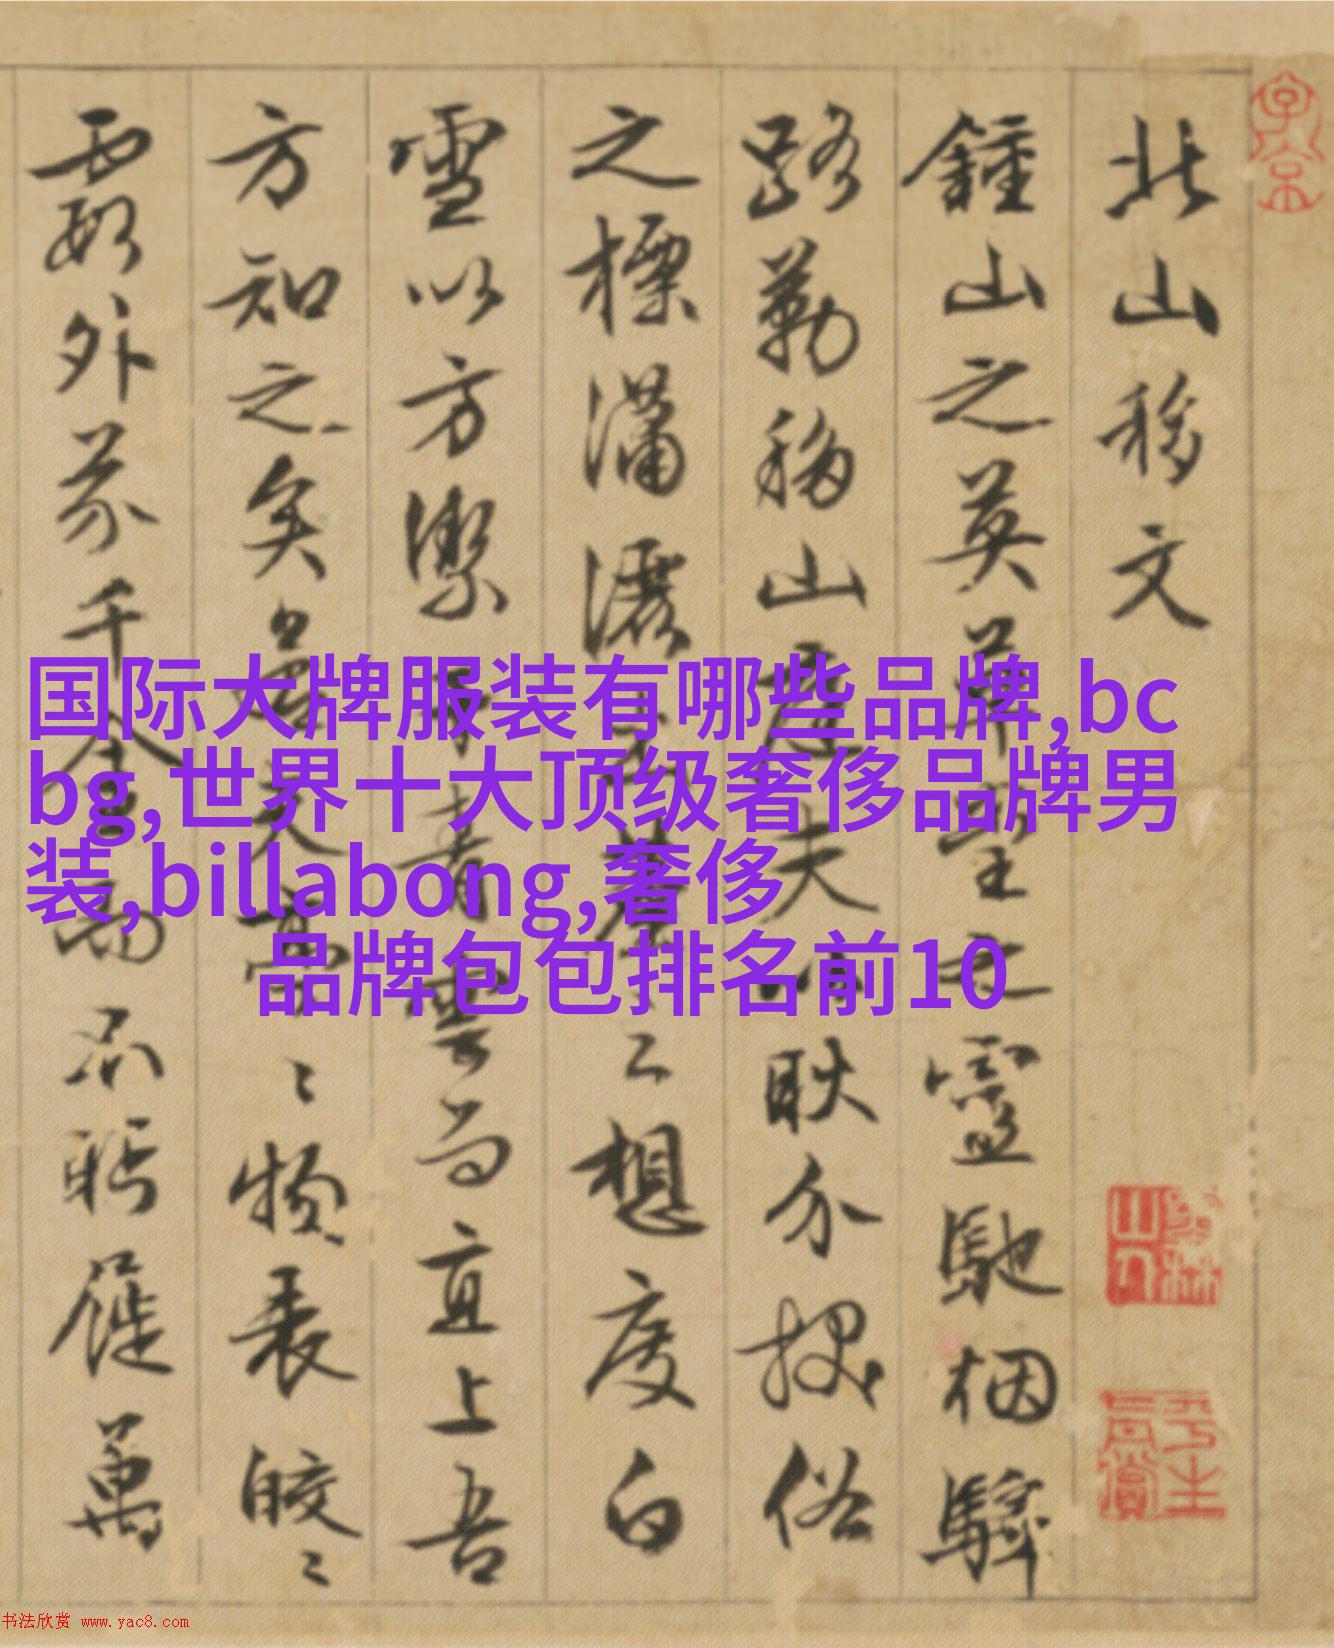 北山移文
鍾山之英草堂之靈馳烟驛
路勒移山庭夫以耿介拔俗
之標瀟灑出塵之想度白
雪以方絜干青雲而直上吾
方知之矣亭〻物表皎〻
霞外芥千金而不眄屣萬
国际大牌服装有哪些品牌,bc
bg,世界十大顶级奢侈品牌男
装,billabong,奢侈
品牌包包排名前10
书法欣赏 www.yac8.com